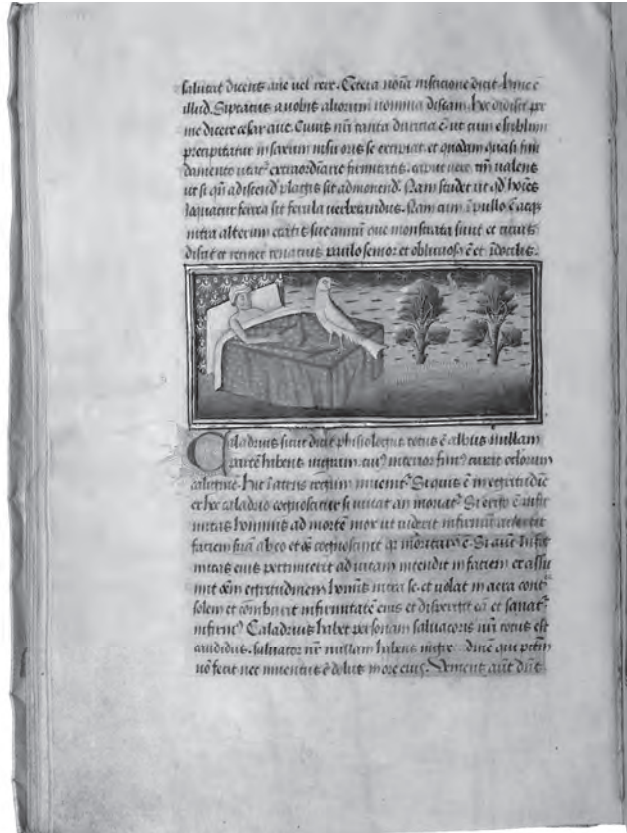 salutat dicens aue uel rere. Cetera noia insticione dicit hinc ē
illud. Sipitatus a uobis aliorum nomina discam. Hoc didisci per
me dicere cesar aue. Cuius nri tanta duritia ē ut cum e sublimi
precipitatur in saxum nisu oris se excipiat et quodam quasi fun
damento utat' extraordinarie firmitatis. caput uero tm ualens
ut si qn ad discend' plagis sit admonend'. Nam studet ut qd hoies
ferrea sit ferula uerberandus. Nam cum ī pullo ē
intra alterum etatis sue annū que monstrata sunt et citius
discit et retinet tenacius paulo senior et obliuiosꝰ ē et īdocilis.
Caladrius sicut dicit phisiologus totus ē albus nullam
partē habens nigram. cuiꝰ interior fimꝰ curat oclorum
caliginē. hic ī atriis regum inuenit'. Siquis ē in egritudīe
et hoc caladrio cognoscitur si uiuat an moriat'. Si ergo ē infir
mitas hominis ad mortē mox ut uiderit infirmū auertit
faciem suā ab eo et oēs cognoscunt qꝫ moriturꝰ ē. Si aut infir
mitas eius pertinuerit ad uitam intendit in faciem et assu
mit oēm egritudinem hominis intra se. et uolat in aera cont'
solem et comburit infirmitatē eius et dispergit eā et sanat'
infirmꝰ. Caladrius habet personam saluatoris nri totus est
candidus. saluator nr nullam habens qui pctm
nō fecit nec inuentus ē dolus in ore eius. Veniens aut dns